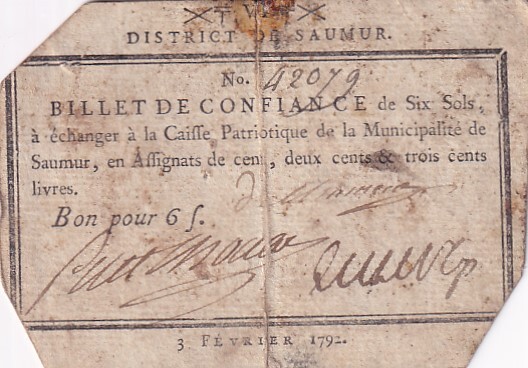 DISTRICT DE SAUMUR.
No. 42079
BILLET DE CONFIANCE de Six Sols,
à échanger à la Caisse Patriotique de la Municipalité de
Saumur, en Assignats de cent, deux cents & trois cents
livres.
Bon pour 6 ſ.
3 FÉVRIER 1792.